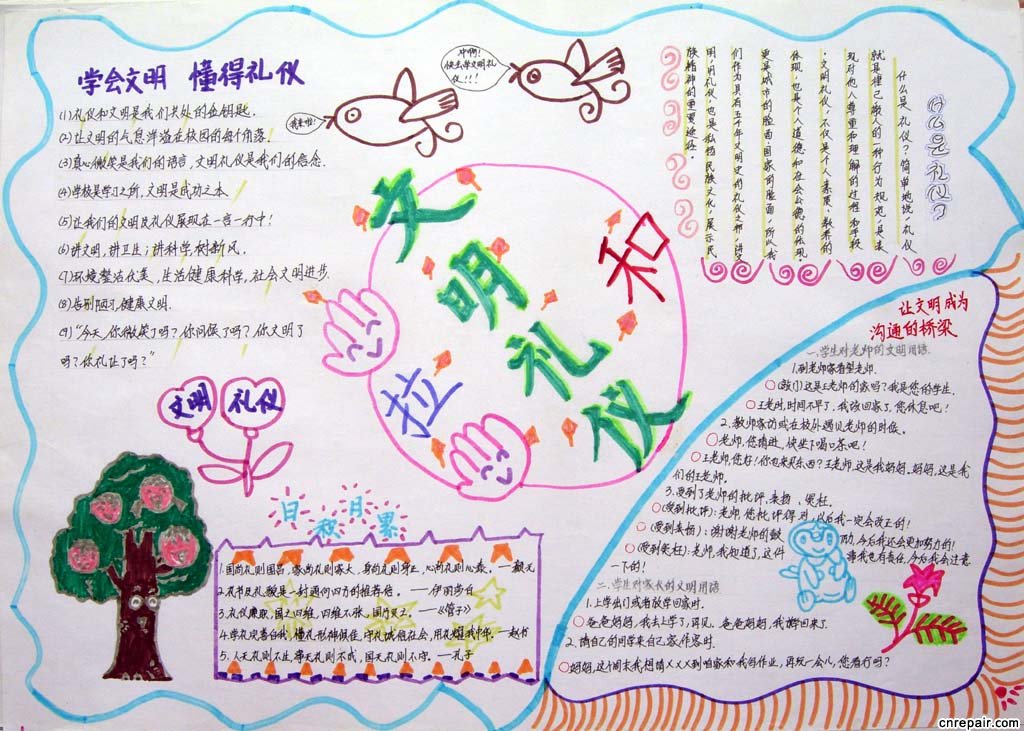 学会文明 懂得礼仪
(1)礼仪和文明是我们共处的金钥匙.
(2)让文明的气息洋溢在校园的每个角落.
(3)真心微笑是我们的语言,文明礼仪是我们的信念.
(4)学校是学习之所,文明是成功之本
(5)让我们的文明及礼仪展现在一言一行中!
(6)讲文明,讲卫生;讲科学树新风.
(7)环境整洁优美,生活健康科学,社会文明进步.
(8)告别陋习,健康文明.
(9)“今天,你微笑了吗?你问候了吗?你文明了
吗?你礼让了吗?”
我来啦!
快去学文明礼
仪!!!
文明礼仪
和
拉
文明 礼仪
什么是礼仪?
什么是礼仪?简单地说,礼仪
就是律己、敬人的一种行为规范,是表
现对他人尊重和理解的过程和手段
.文明礼仪,不仅是个人素质、教养的
体现,也是个人道德和社会公德的体现.
更是城市的脸面,国家的脸面.所以我
们作为具有五千年文明史的“礼仪之邦”,讲文
明,用礼仪,也是弘扬民族文化,展示民
族精神的重要途径.
日积月累
1.国尚礼则国昌,家尚礼则家大,身尚礼则身正,心尚礼则心泰。——颜元
2.礼节及礼貌是一封通向四方的推荐信。——伊丽莎白
3.礼仪廉耻,国之四维,四维不张,国乃灭亡。——《管子》
5.人无礼则不生,事无礼则不成,国无礼则不守。——孔子
让文明成为
沟通的桥梁
一.学生对老师的文明用语.
1.到老师家看望老师.
(敲门)这是王老师的家吗?我是您的学生.
王老师,时间不早了.我该回家了,您休息吧!
2.教师家访或在校外遇见老师的时候。
老师,您请进,快坐下喝口茶吧!
王老师,您好!你也来买东西?王老师,这是我妈妈.妈妈,这是我
们的王老师.
3.受到了老师的批评、表扬、冤枉。
(受到批评):老师,您批评得对,以后我一定会改正的!
(受到表扬):谢谢老师的鼓 励,今后我还会更加努力的!
(受到冤枉):老师,我知道了,这件 事我也有责任,今后我会注意
一下的!
二.学生对家长的文明用语
1.上学出门或者放学回家时.
爸爸妈妈,我去上学了,再见.爸爸妈妈,我放学回来了.
2.请自己的同学来自己家作客时.
妈妈,这个周末我想请×××到咱家和我写作业,再玩一会儿,您看行吗?
cnrepair.com